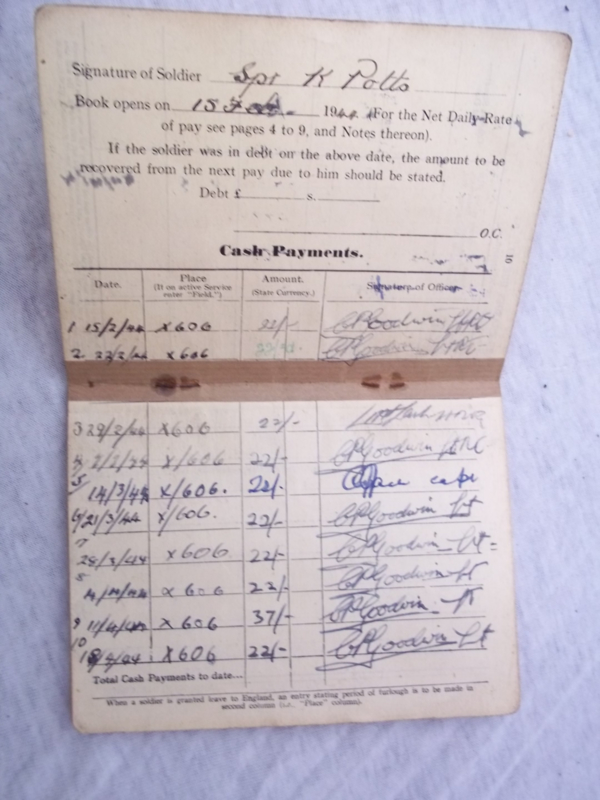 Signature of Soldier Spr K Potts
Book opens on 15 Feb. 1944. (For the Net Daily Rate
of pay see pages 4 to 9, and Notes thereon).
If the soldier was in debt on the above date, the amount to be
recovered from the next pay due to him should be stated.
Debt £ s.
O.C.
Cash Payments.
Date. Place (If on active Service enter "Field.") Amount. (State Currency.) Signature of Officer
1 15/2/44 X606 22/- CPGoodwin
2 22/2/44 X606 CPGoodwin
3 29/2/44 X606 22/-
X/606 22/- CPGoodwin
5 14/3/44 X/606. 22/-
6 21/3/44 X/606. 22/- CPGoodwin Lt
7 28/3/44 X606 22/- CPGoodwin Lt
8 4/4/44 X606 22/- CPGoodwin Lt
9 11/4/44 X606 37/- CPGoodwin Lt
10 X606 22/- CPGoodwin Lt
Total Cash Payments to date...
When a soldier is granted leave to England, an entry stating period of furlough is to be made in
second column (i.e., "Place" column).